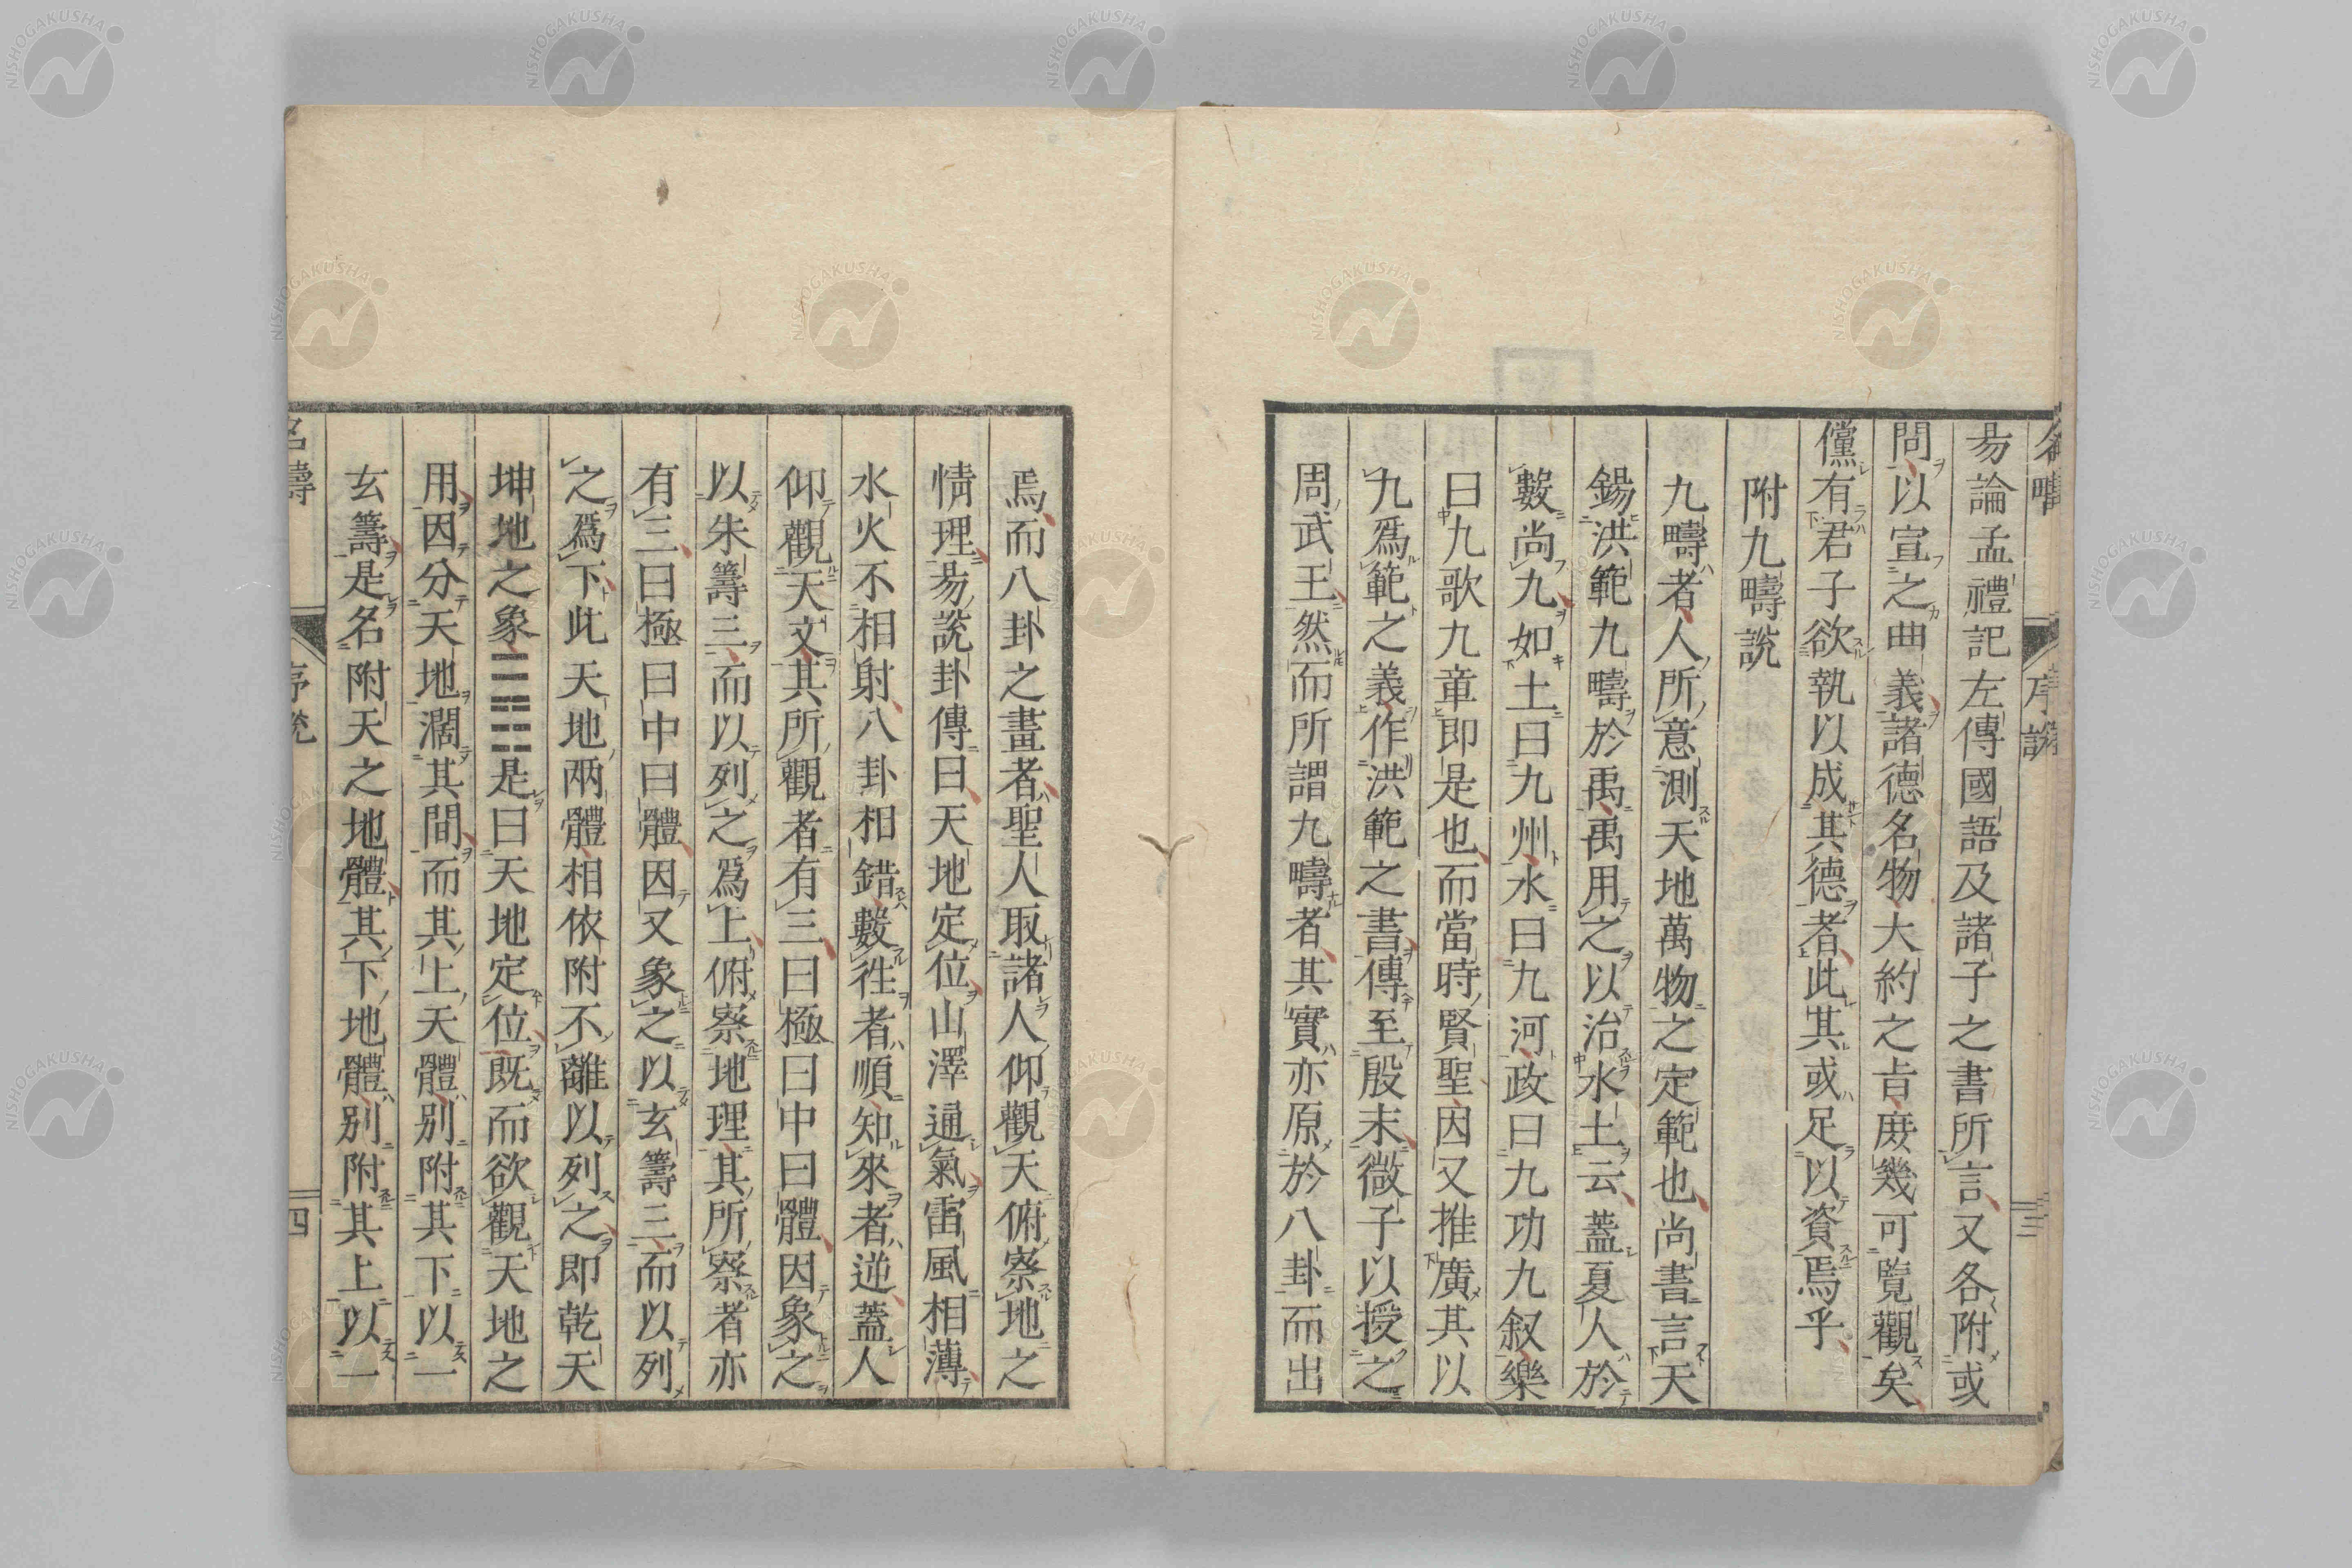 易論孟禮記左傳國語及諸子之書所言又各附或
問以宣之曲義諸德名物大約之旨庶幾可覽觀矣
儻有君子欲執以成其德者此其或足以資焉乎
附九疇說
九疇者人所意測天地萬物之定範也尚書言天
錫洪範九疇於禹禹用之以治水土云蓋夏人於
數尚九如土曰九州水曰九河政曰九功九叙樂
曰九歌九章即是也而當時賢聖因又推廣其以
九爲範之義作洪範之書傳至殷末微子以授之
周武王然而所謂九疇者其實亦原於八卦而出
焉而八卦之畫者聖人取諸人仰觀天俯察地之
情理易說卦傳曰天地定位山澤通氣雷風相薄
水火不相射八卦相錯數徃者順知來者逆蓋人
仰觀天文其所觀者有三曰極曰中曰體因象之
以朱籌三而以列之爲上俯察地理其所察者亦
有三曰極曰中曰體因又象之以玄籌三而以列
之爲下此天地兩體相依附不離以列之即乾天
坤地之象☰☷是曰天地定位既而欲觀天地之
用因分天地濶其間而其上天體別附其下以一
玄籌是名附天之地體其下地體別附其上以一
名疇
序說
四
名疇
序說
三
NISHOGAKUSHA